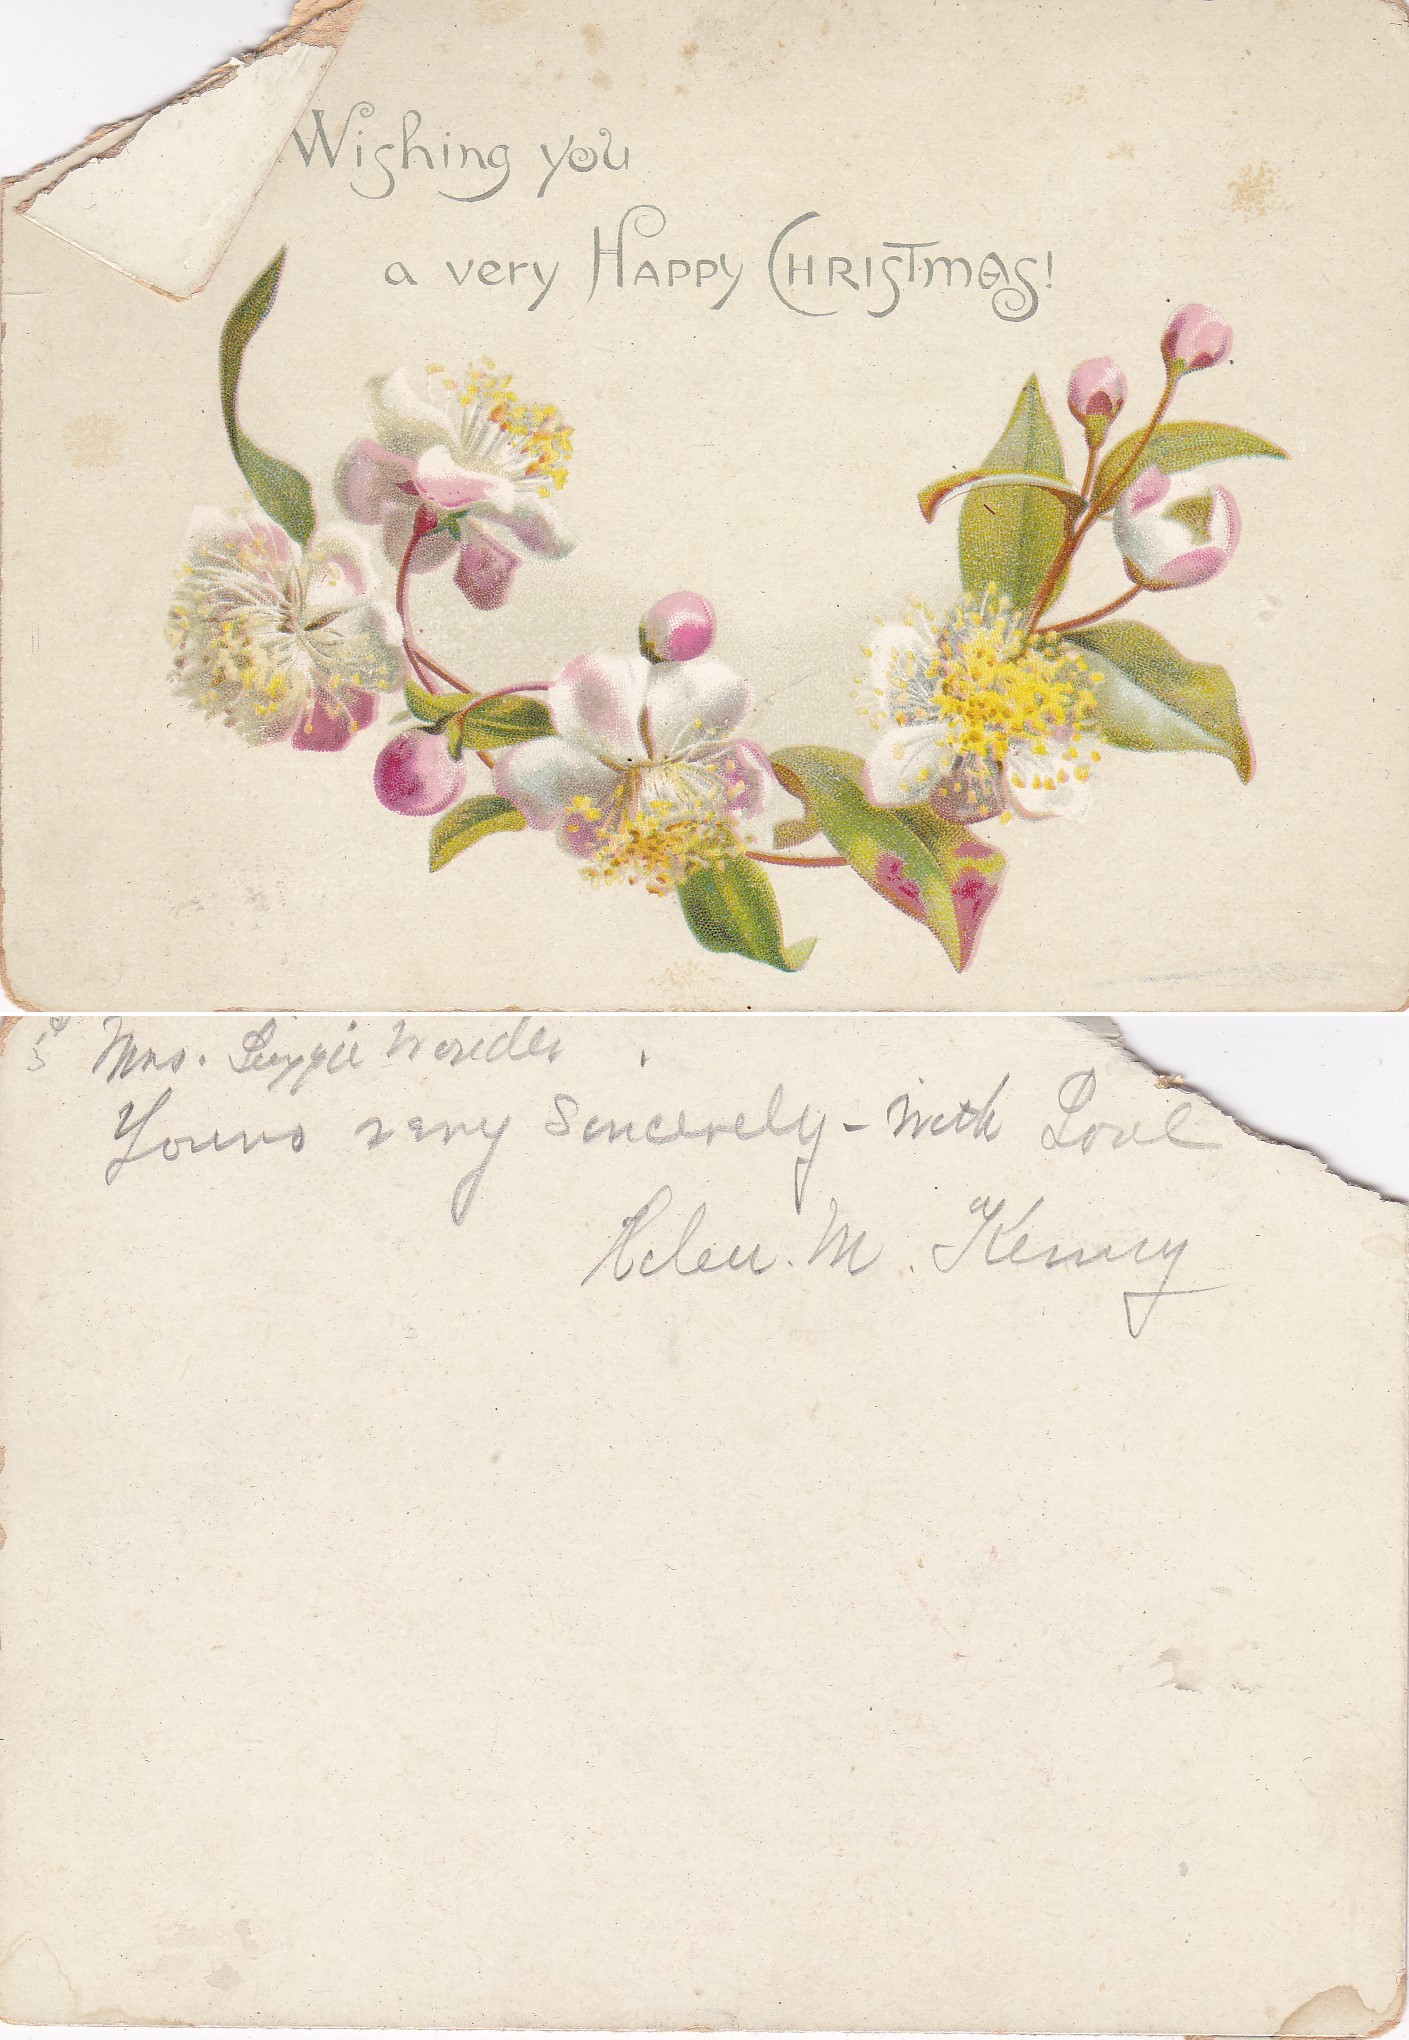 Wishing you
a very Happy Christmas!
Mrs. Lizzie
Yours very Sincerely - with Love
Helen. M. Kenny